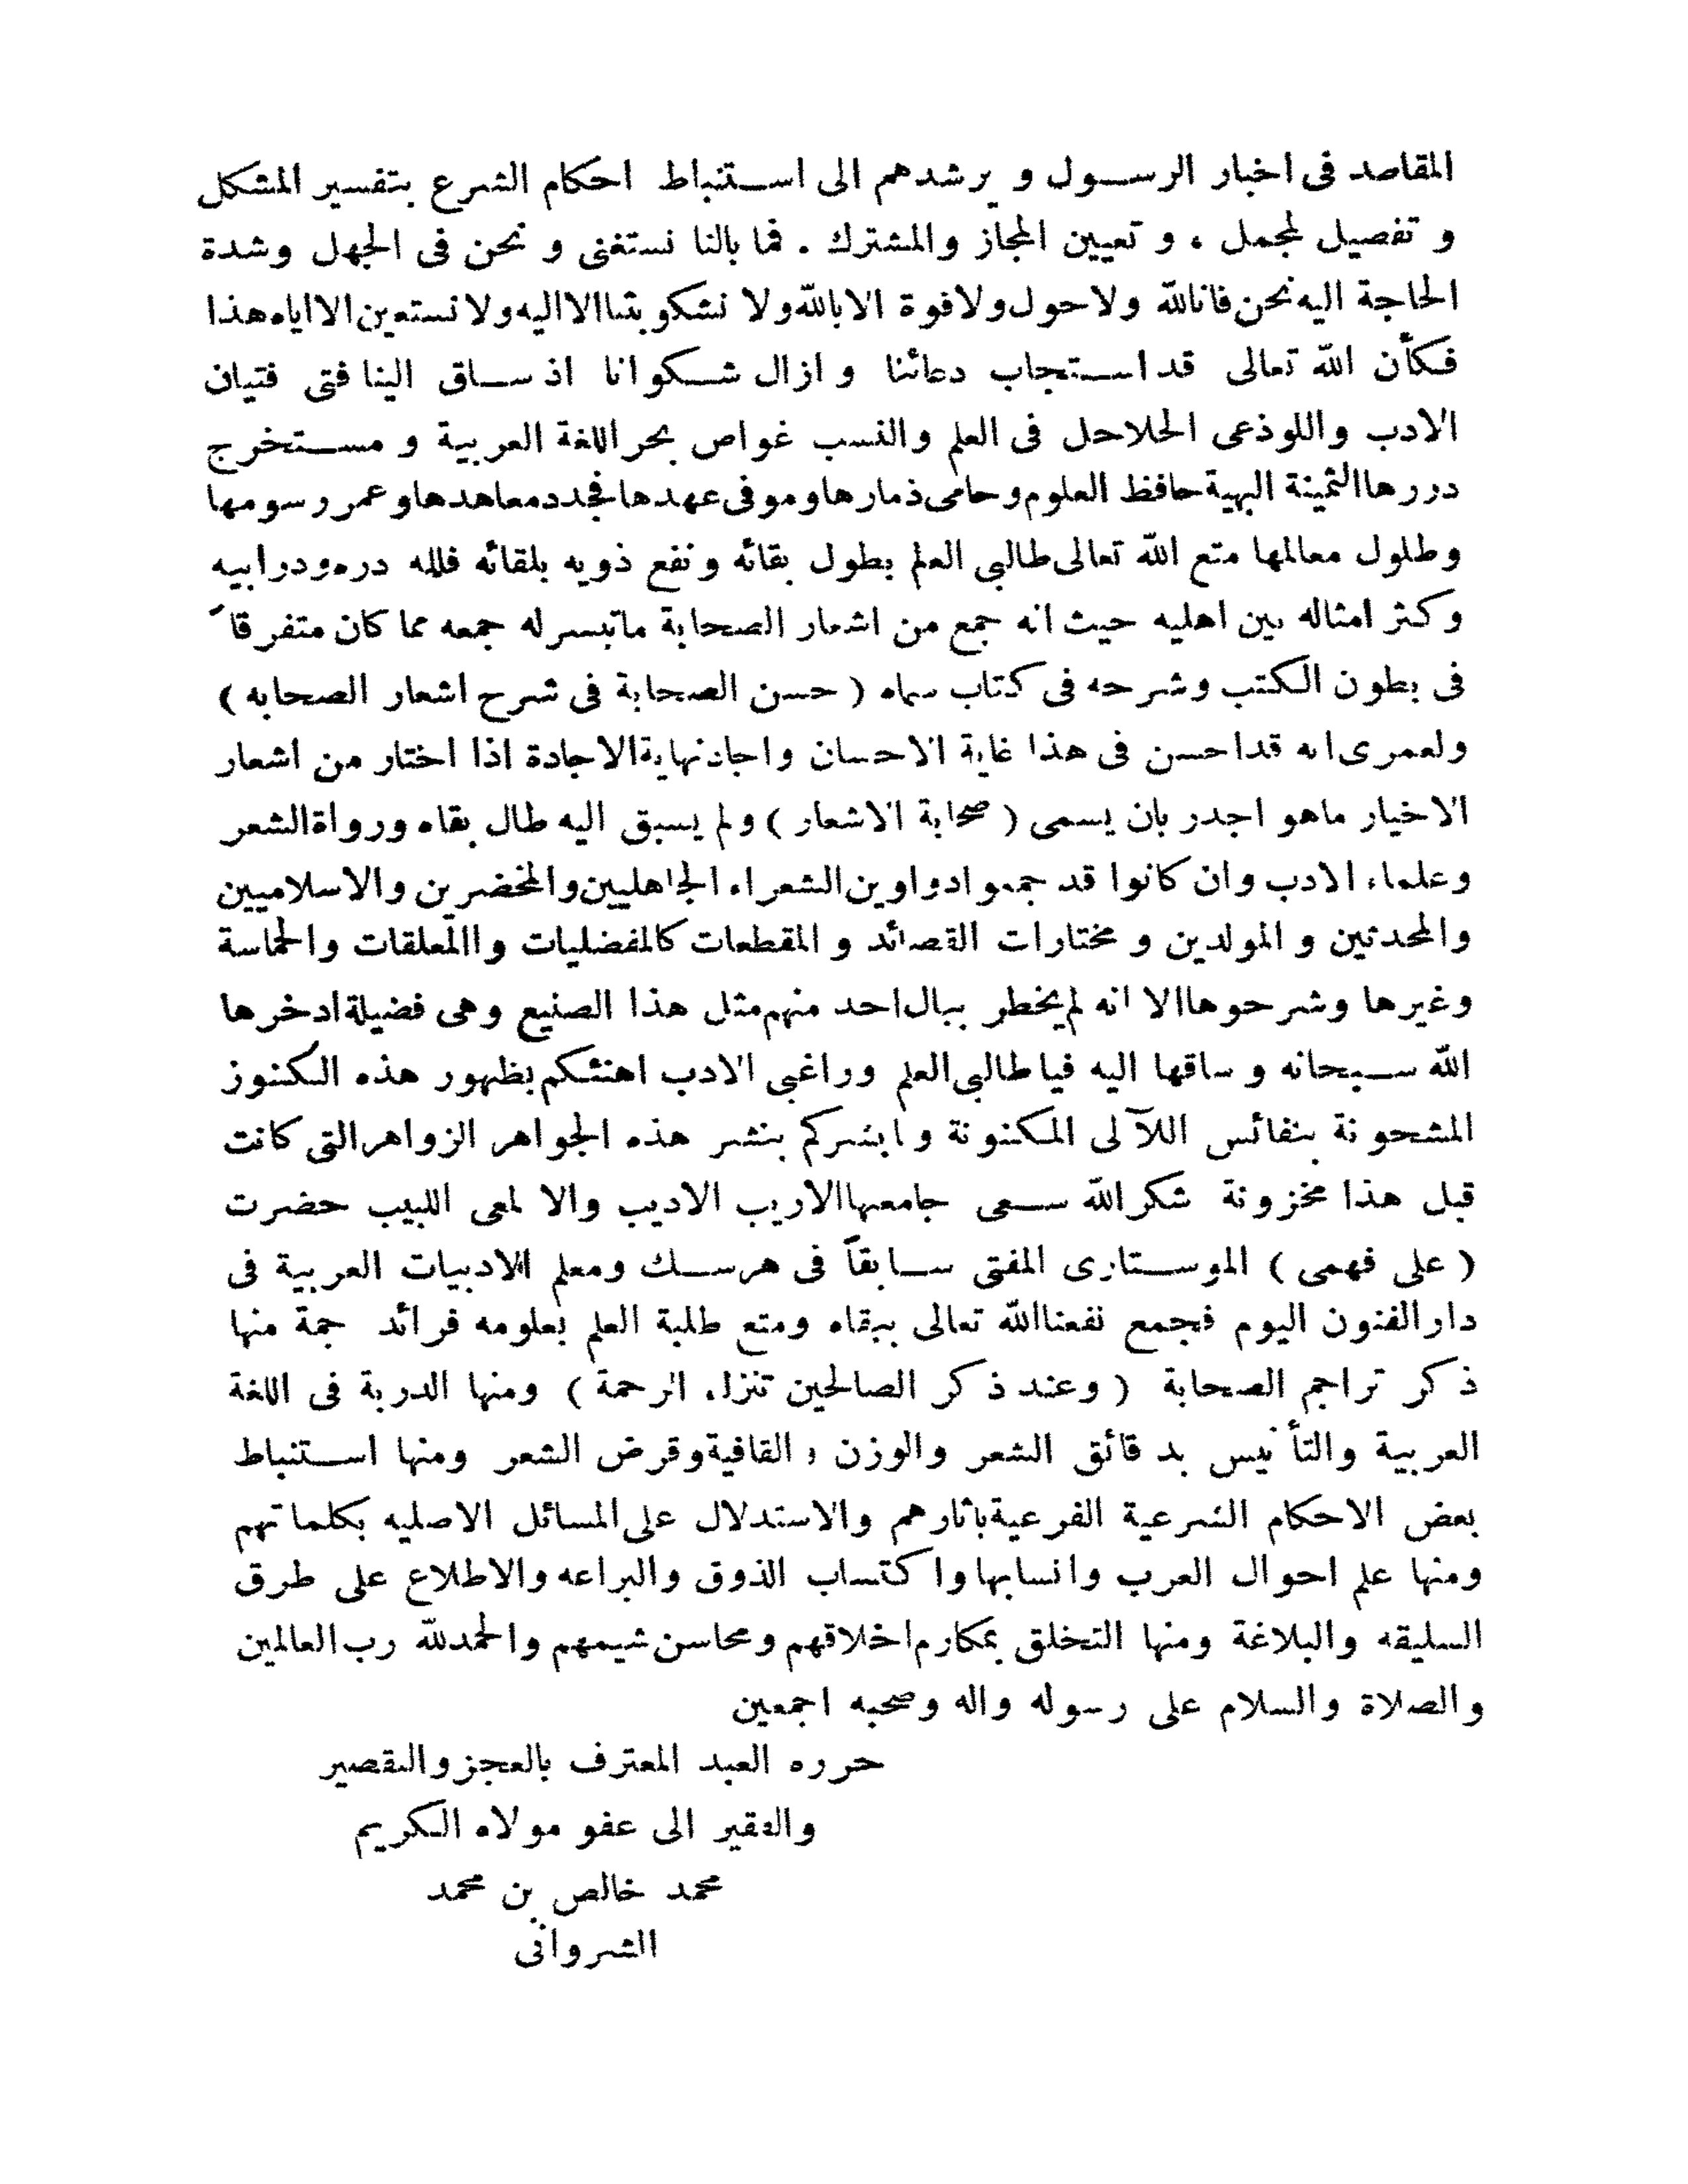 المقاصد فى اخبار الرسول و يرشدهم الى استنباط احكام الشرع بتفسير المشكل
و تفصيل لمجمل ، و تعيين المجاز والمشترك . فما بالنا نستغنى و نحن فى الجهل وشدة
الحاجة اليه نحن فانالله ولاحول ولاقوة الابالله ولا نشكو بثنا الا اليه ولا نستعين الا اياه هذا
فكأن الله تعالى قد استجاب دعائنا و ازال شكوانا اذ ساق الينا فتى فتيان
الادب واللوذعى الحلاحل فى العلم والنسب غواص بحر اللغة العربية و مستخرج
دررها الثمينة البهية حافظ العلوم وحامى ذمارها وموفى عهدها فجدد معاهدها وعمر رسومها
وطلول معالمها متع الله تعالى طالبى العلم بطول بقائه ونفع ذويه بلقائه فلله دره ودر ابيه
وكثر امثاله بين اهليه حيث انه جمع من اشعار الصحابة ماتيسر له جمعه مما كان متفرقاً
فى بطون الكتب وشرحه فى كتاب سماه ( حسن الصحابة فى شرح اشعار الصحابه )
ولعمرى انه قد احسن فى هذا غاية الاحسان واجاد نهاية الاجادة اذا اختار من اشعار
الاخيار ماهو اجدر بان يسمى ( صحابة الاشعار ) ولم يسبق اليه طال بقاه ورواة الشعر
وعلماء الادب وان كانوا قد جمعوا دواوين الشعراء الجاهليين والمخضرين والاسلاميين
والمحدثين و المولدين و مختارات القصائد و المقطعات كالمفضليات واالمعلقات والحماسة
وغيرها وشرحوها الا انه لم يخطر ببال احد منهم مثل هذا الصنيع وهى فضيلة ادخرها
الله سبحانه و ساقها اليه فيا طالبى العلم وراغبى الادب اهنئكم بظهور هذه الكنوز
المشحونة بنفائس اللآلى المكنونة وابشركم بنشر هذه الجواهر الزواهر التى كانت
قبل هذا مخزونة شكر الله سعى جامعها الاريب الاديب والا لمعى اللبيب حضرت
( على فهمى ) الموستارى المفتى سابقاً فى هرسك ومعلم الادبيات العربية فى
دار الفنون اليوم فجمع نفعنا الله تعالى ببقاه ومتع طلبة العلم بعلومه فرائد جمة منها
ذكر تراجم الصحابة ( وعند ذكر الصالحين تنزل الرحمة ) ومنها الدربة فى اللغة
العربية والتأنيس بد قائق الشعر والوزن و القافية وقرض الشعر ومنها استنباط
بعض الاحكام الشرعية الفرعية باثارهم والاستدلال على المسائل الاصليه بكلماتهم
ومنها علم احوال العرب وانسابها واكتساب الذوق والبراعه والاطلاع على طرق
السليقه والبلاغة ومنها التخلق بمكارم اخلاقهم ومحاسن شيمهم والحمدلله رب العالمين
والصلاة والسلام على رسوله واله وصحبه اجمعين
حرره العبد المعترف بالعجز والتقصير
والفقير الى عفو مولاه الكريم
محمد خالص بن محمد
الشروانى